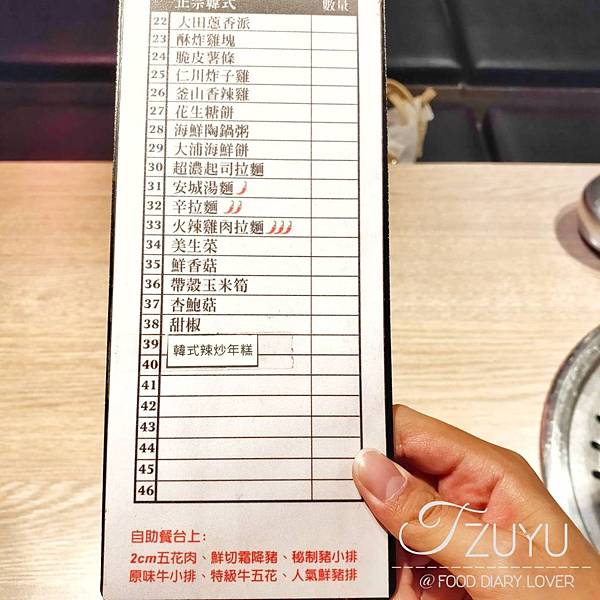 正宗韓式 數量
22 大田蔥香派
23 酥炸雞塊
24 脆皮薯條
25 仁川炸子雞
26 釜山香辣雞
27 花生糖餅
28 海鮮陶鍋粥
29 大浦海鮮餅
30 超濃起司拉麵
31 安城湯麵
32 辛拉麵
33 火辣雞肉拉麵
34 美生菜
35 鮮香菇
36 帶殼玉米筍
37 杏鮑菇
38 甜椒
39
韓式辣炒年糕
40
41
42
43
44
45
46
自助餐台上:
2cm五花肉、鮮切霜降豬、秘制豬小排
原味牛小排、特級牛五花、人氣鮮豬排
TZUYU
@ FOOD DIARY.LOVER